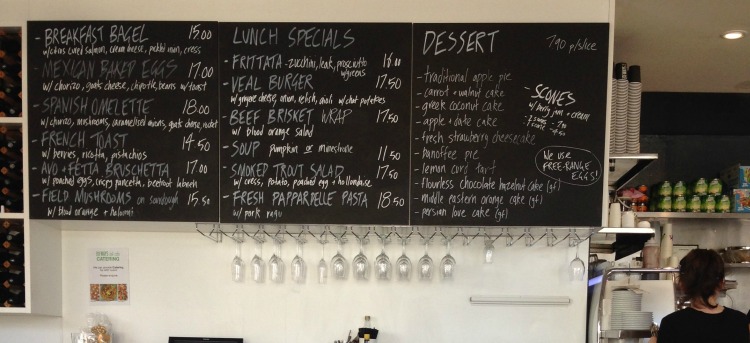 - BREAKFAST BAGEL 15.00
w/ citrus cured salmon, cream cheese, pickled onion, cress
- MEXICAN BAKED EGGS 17.00
w/ chorizo, goats cheese, chipotle, beans w/ toast
- SPANISH OMELETTE 18.00
w/ chorizo, mushrooms, caramelised onions, goats cheese, rocket
- FRENCH TOAST 14.50
w/ berries, ricotta, pistachios
- AVO + FETTA BRUSCHETTA 17.00
w/ poached eggs, crispy pancetta, beetroot labneh
- FIELD MUSHROOMS on sourdough 15.50
w/ blood orange + haloumi
LUNCH SPECIALS
- FRITTATA - zucchini, leak, prosciutto 16.00
w/ greens
- VEAL BURGER 17.50
w/ gruyere cheese, onion, relish, aioli w/ chat potatoes
- BEEF BRISKET WRAP 17.50
w/ blood orange salad
- SOUP pumpkin or minestrone 11.50
- SMOKED TROUT SALAD 17.50
w/ cress, potato, poached egg + hollandaise
- FRESH PAPPARDELLE PASTA 18.50
w/ pork ragu
DESSERT 7.90 p/slice
- traditional apple pie
- carrot + walnut cake
- greek coconut cake
- apple + date cake
- fresh strawberry cheesecake
- banoffee pie
- lemon curd tart
- flourless chocolate hazelnut cake (gf)
- middle eastern orange cake (gf)
- persian love cake (gf)
- SCONES
w/ berry jam + cream
We use
FREE-RANGE
EGGS!
CATERING